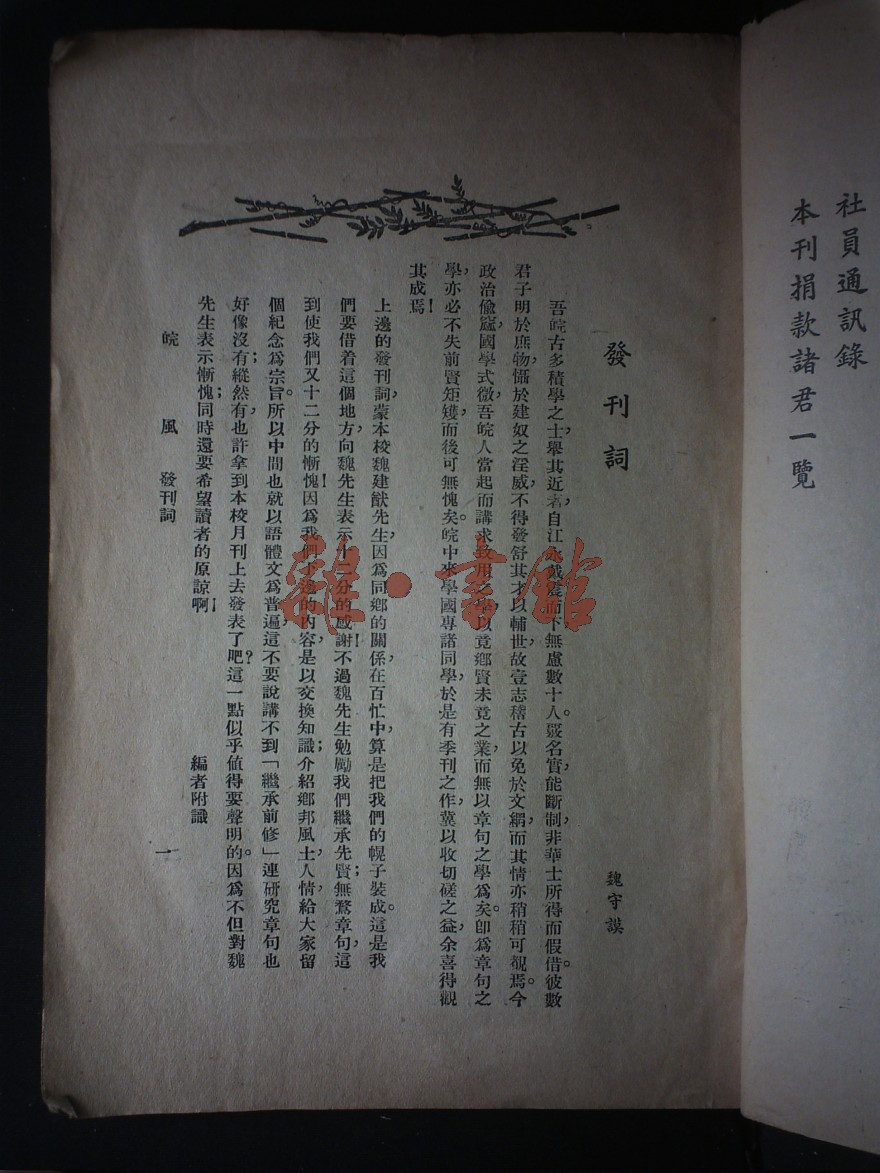 社員通訊錄
本刊捐款諸君一覽
發刊詞
魏守謨
吾皖古多積學之士,舉其近者,自江永戴震而下,無慮數十人。覈名實,能斷制,非華士所得而假借。彼數
君子明於庶物,懾於建奴之淫威,不得發舒其才以輔世,故壹志稽古以免於文網,而其情亦稍稍可覩焉。今
政治偷窳,國學式微,吾皖人當起而講求致用之學,以竟鄉賢未竟之業,而無以章句之學爲矣。卽爲章句之
學,亦必不失前賢矩矱,而後可無愧矣。皖中來學國專諸同學,於是有季刊之作,冀以收切磋之益,余喜得觀
其成焉!
上邊的發刊詞,蒙本校魏建猷先生,因爲同鄉的關係,在百忙中,算是把我們的幌子裝成。這是我
們要借着這個地方,向魏先生表示十二分的感謝!不過魏先生勉勵我們繼承先賢;無騖章句,這
到使我們又十二分的慚愧!因爲我們下邊的內容,是以交換知識;介紹鄉邦風土,人情,給大家留
個紀念爲宗旨。所以中間也就以語體文爲普遍,這不要說講不到「繼承前修」連研究章句也
好像沒有;縱然有,也許拿到本校月刊上去發表了吧?這一點似乎値得要聲明的。因爲不但對魏
先生表示慚愧;同時還要希望讀者的原諒啊!
編者附識
皖風 發刊詞
一
雜·書館